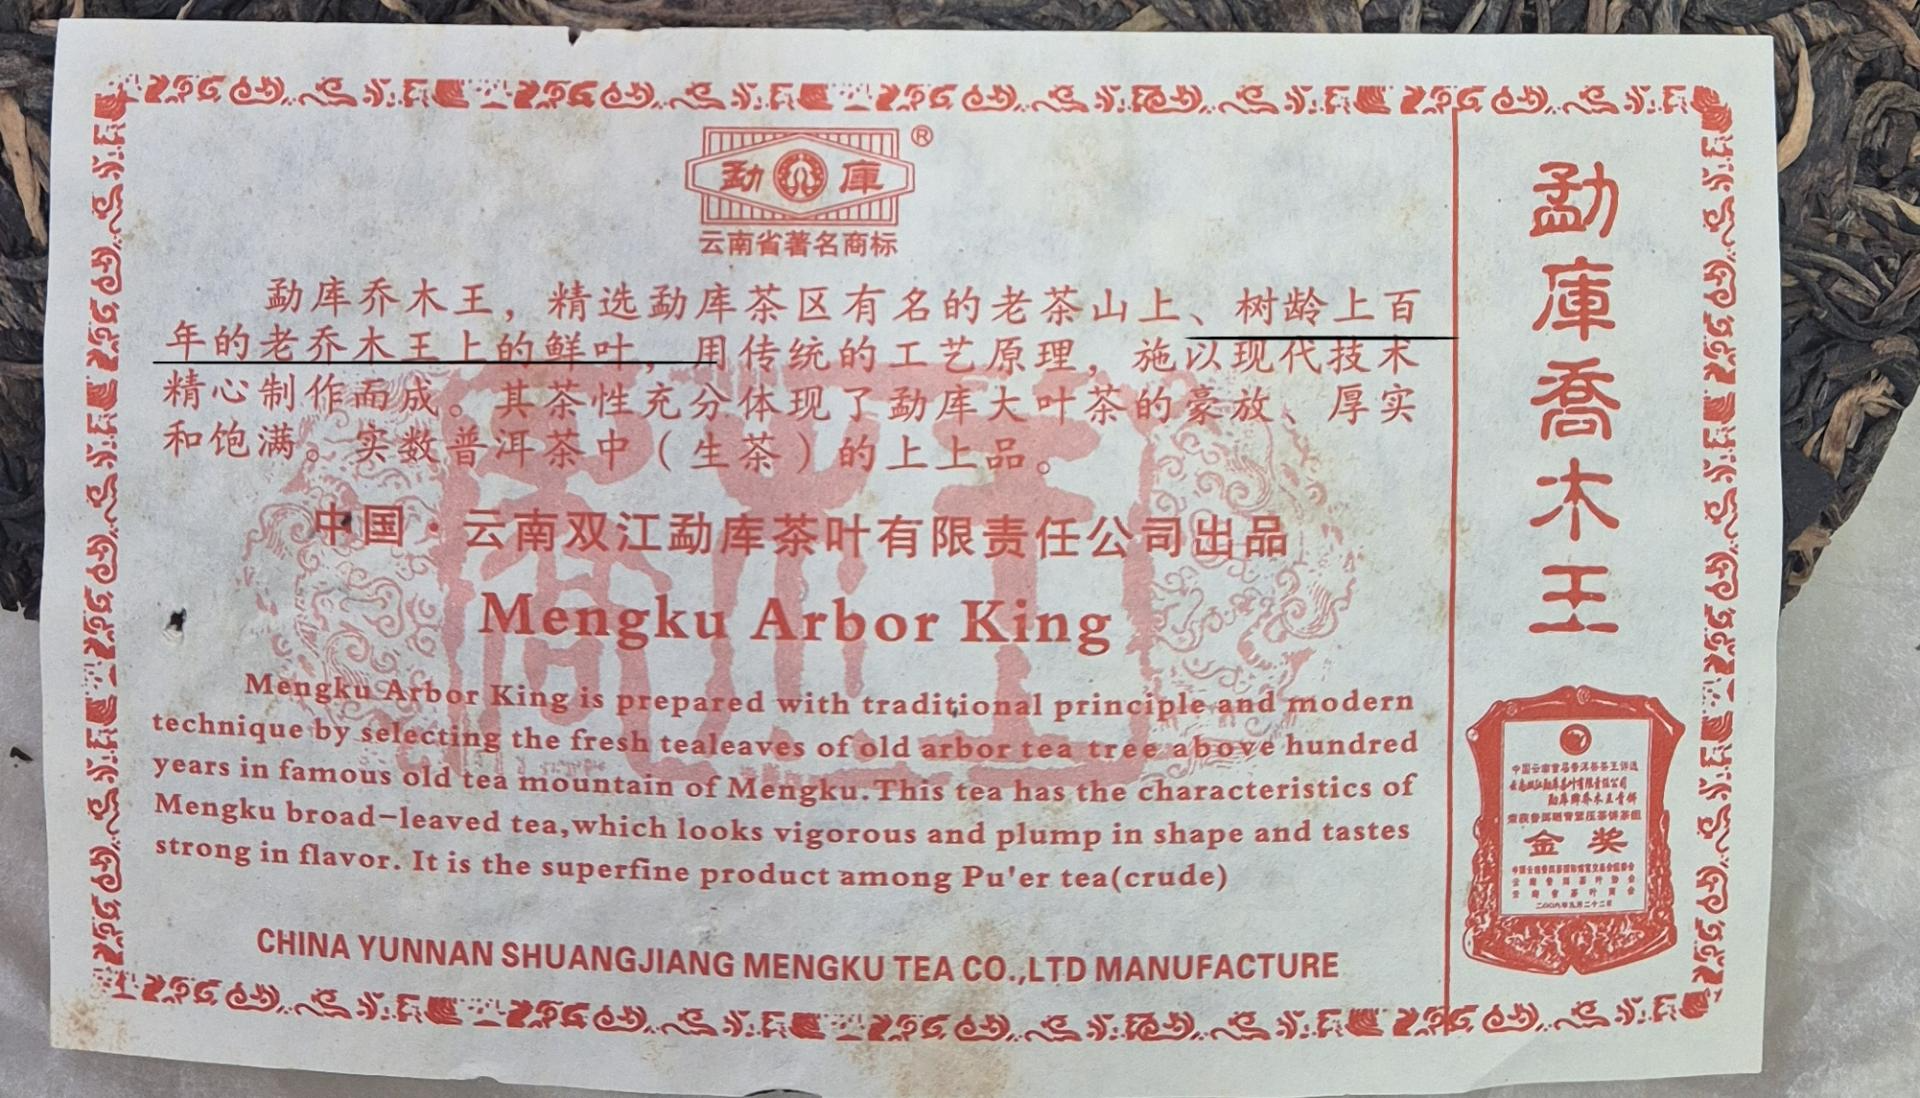 勐庫
®
云南省著名商标
勐库乔木王，精选勐库茶区有名的老茶山上、树龄上百
年的老乔木王上的鲜叶，用传统的工艺原理，施以现代技术
精心制作而成。其茶性充分体现了勐库大叶茶的豪放、厚实
和饱满。实数普洱茶中（生茶）的上上品。
中国·云南双江勐库茶叶有限责任公司出品
Mengku Arbor King
Mengku Arbor King is prepared with traditional principle and modern
technique by selecting the fresh tealeaves of old arbor tea tree above hundred
years in famous old tea mountain of Mengku.This tea has the characteristics of
Mengku broad-leaved tea,which looks vigorous and plump in shape and tastes
strong in flavor. It is the superfine product among Pu'er tea(crude)
CHINA YUNNAN SHUANGJIANG MENGKU TEA CO.,LTD MANUFACTURE
勐庫喬木王
云南双江勐库茶叶有限责任公司
勐库牌乔木王青饼
金奖
云南省普洱茶协会
云南省茶叶商会